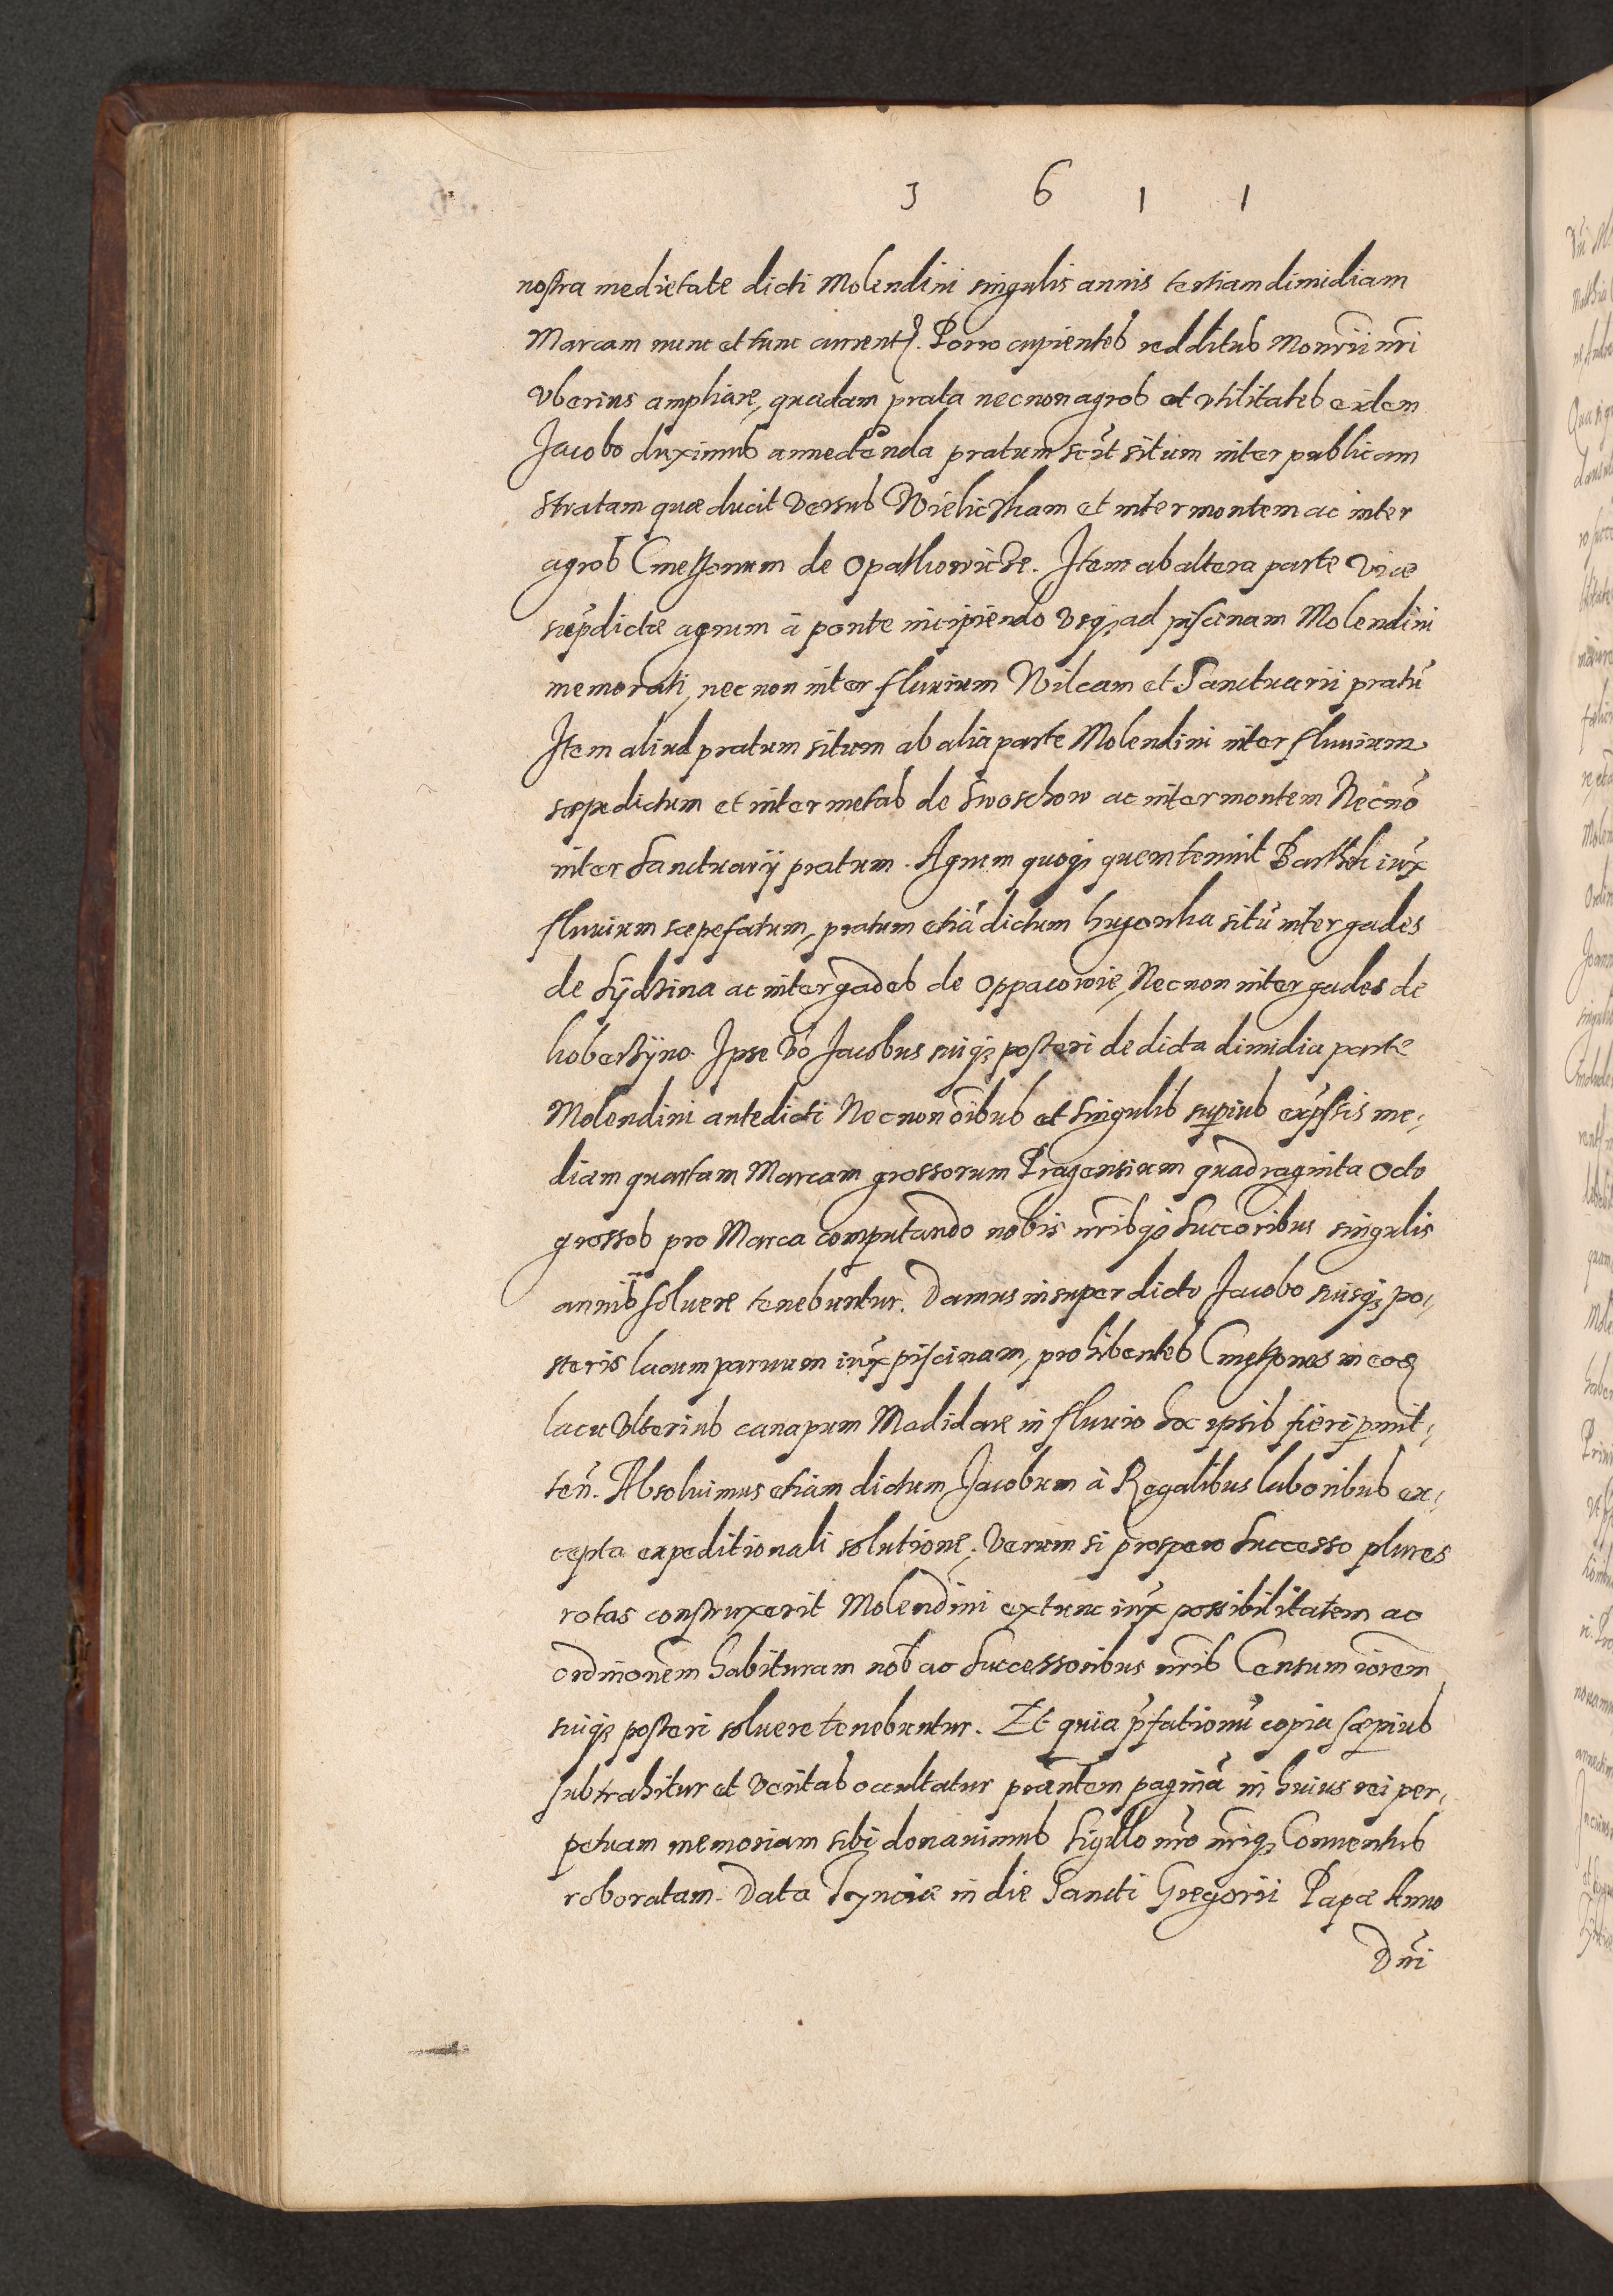 3 6 1 1
nostra medietate dicti Molendini singulis annis tertiam dimidiam
Marcam nunc et tunc current. Porro cupientes redditus Monrii nri
vberius ampliare, quædam prata necnon agros et vtilitates eidem
Jacobo duximus annectenda pratum scit situm inter publicam
stratam quæ ducit versus Wieliczkam et inter montem ac inter
agros Cmethonum de Opathowicze. Item ab altera parte viæ
supdictæ agrum à ponte incipiendo vsq; ad piscinam Molendini
memorati, nec non inter fluuium Wilcam et Sanctuarii pratū
Item aliud pratum situm ab alia parte Molendini inter fluuium
sæpedictum et inter metas de Swoschow ac inter montem Necnō
inter Sanctuarij pratum. Agrum quoq; quem tenuit Barthek iux
fluuium sæpefatum, pratum etiā dictum hujonka sitū inter gades
de Sijdzina ac inter gades de Oppacowie, Necnon inter gades de
koberzijno. Ipse vō Jacobus suiq; posteri de dicta dimidia parte
Molendini antedicti Necnon oibus et singulis supius expssis me,
diam quartam Marcam grossorum Pragensium quadraginta octo
grossos pro Marca computando nobis nribq; Succoribus singulis
annis soluere tenebuntur. Damus insuper dicto Jacobo suisq; po,
steris lacum paruum iux piscinam, prohibentes Cmethones in eo
lacu vlterius canapum Madidare in fluuio hoc ipsis fieri pmit,
ten. Absoluimus etiam dictum Jacobum à Regalibus laboribus ex,
cepta expeditionali solutione, verum si prospero Successo plures
rotas construxerit Molendini extunc iux possibilitatem ac
ordinonem habituram nob ac Successoribus nris Censum iorem
suiq; posteri soluere tenebuntur. Et quia pfationū copia sæpius
subtrahitur et veritas occultatur præntem paginā in huius rei per,
petuam memoriam sibi donauimus Sigillo nro nriq; Conuentus
roboratam. Data Tynciæ in die Sancti Gregorii Papæ Anno
Dni